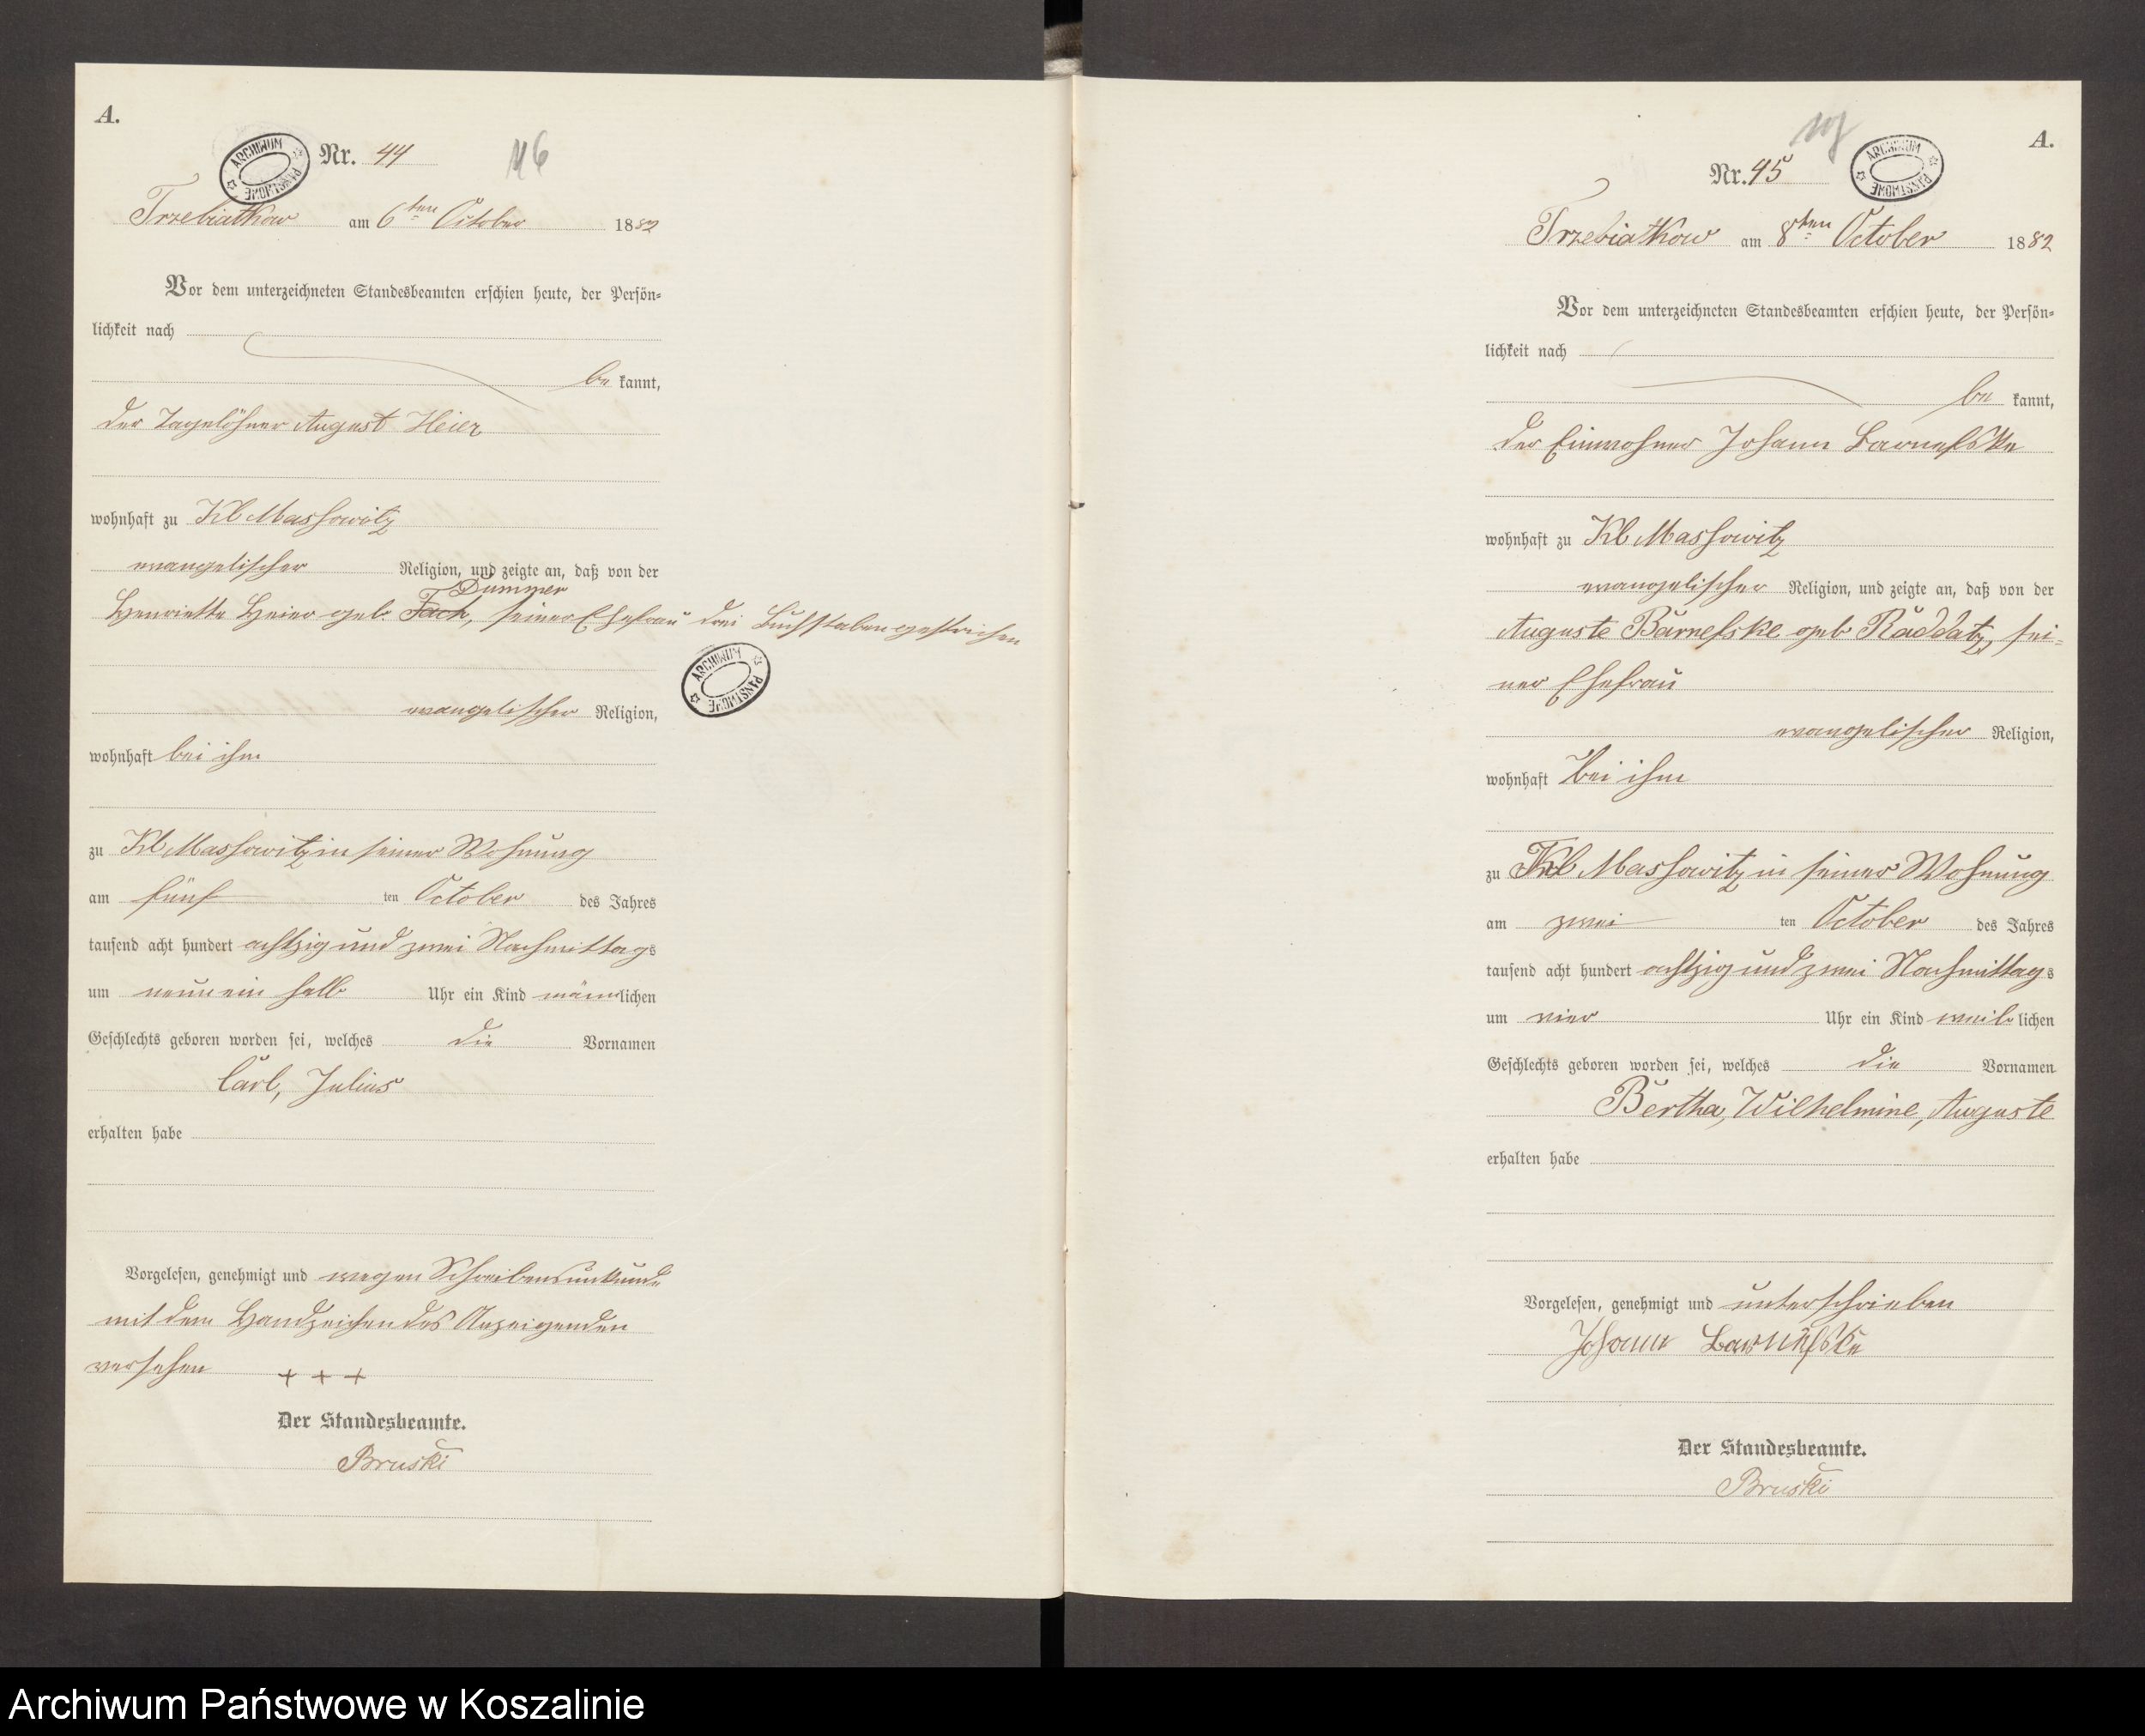 A.
ARCHIWUM PAŃSTWOWE
Nr. 44
46
Trzebiatkow am 6ten October 1882
Vor dem unterzeichneten Standesbeamten erschien heute, der Persön-
lichkeit nach
be kannt,
der Tagelöhner August Heier
wohnhaft zu Kl Massowitz
evangelischer Religion, und zeigte an, daß von der
Dummer
Henriette Heier geb. Fach, seiner Ehefrau drei Buchstaben gestrichen
ARCHIWUM PAŃSTWOWE
evangelischer Religion,
wohnhaft bei ihm
zu Kl Massowitz in seiner Wohnung
am fünf ten October des Jahres
tausend acht hundert achtzig und zwei Nachmittags
um neun ein halb Uhr ein Kind männlichen
Geschlechts geboren worden sei, welches die Vornamen
Carl, Julius
erhalten habe
Vorgelesen, genehmigt und wegen Schreibensunkunde
mit dem Handzeichen des Anzeigenden
versehen + + +
Der Standesbeamte.
Bruski
A.
ARCHIWUM PAŃSTWOWE
Nr. 45
Trzebiatkow am 8ten October 1882
Vor dem unterzeichneten Standesbeamten erschien heute, der Persön-
lichkeit nach
be kannt,
der Einwohner Johann Barnefske
wohnhaft zu Kl Massowitz
evangelischer Religion, und zeigte an, daß von der
Auguste Barnefske geb Raddatz, sei-
ner Ehefrau
evangelischer Religion,
wohnhaft bei ihm
zu Kl Massowitz in seiner Wohnung
am zwei ten October des Jahres
tausend acht hundert achtzig und zwei Nachmittags
um vier Uhr ein Kind weiblichen
Geschlechts geboren worden sei, welches die Vornamen
Bertha, Wilhelmine, Auguste
erhalten habe
Vorgelesen, genehmigt und unterschrieben
Johann Barnefske
Der Standesbeamte.
Bruski
Archiwum Państwowe w Koszalinie